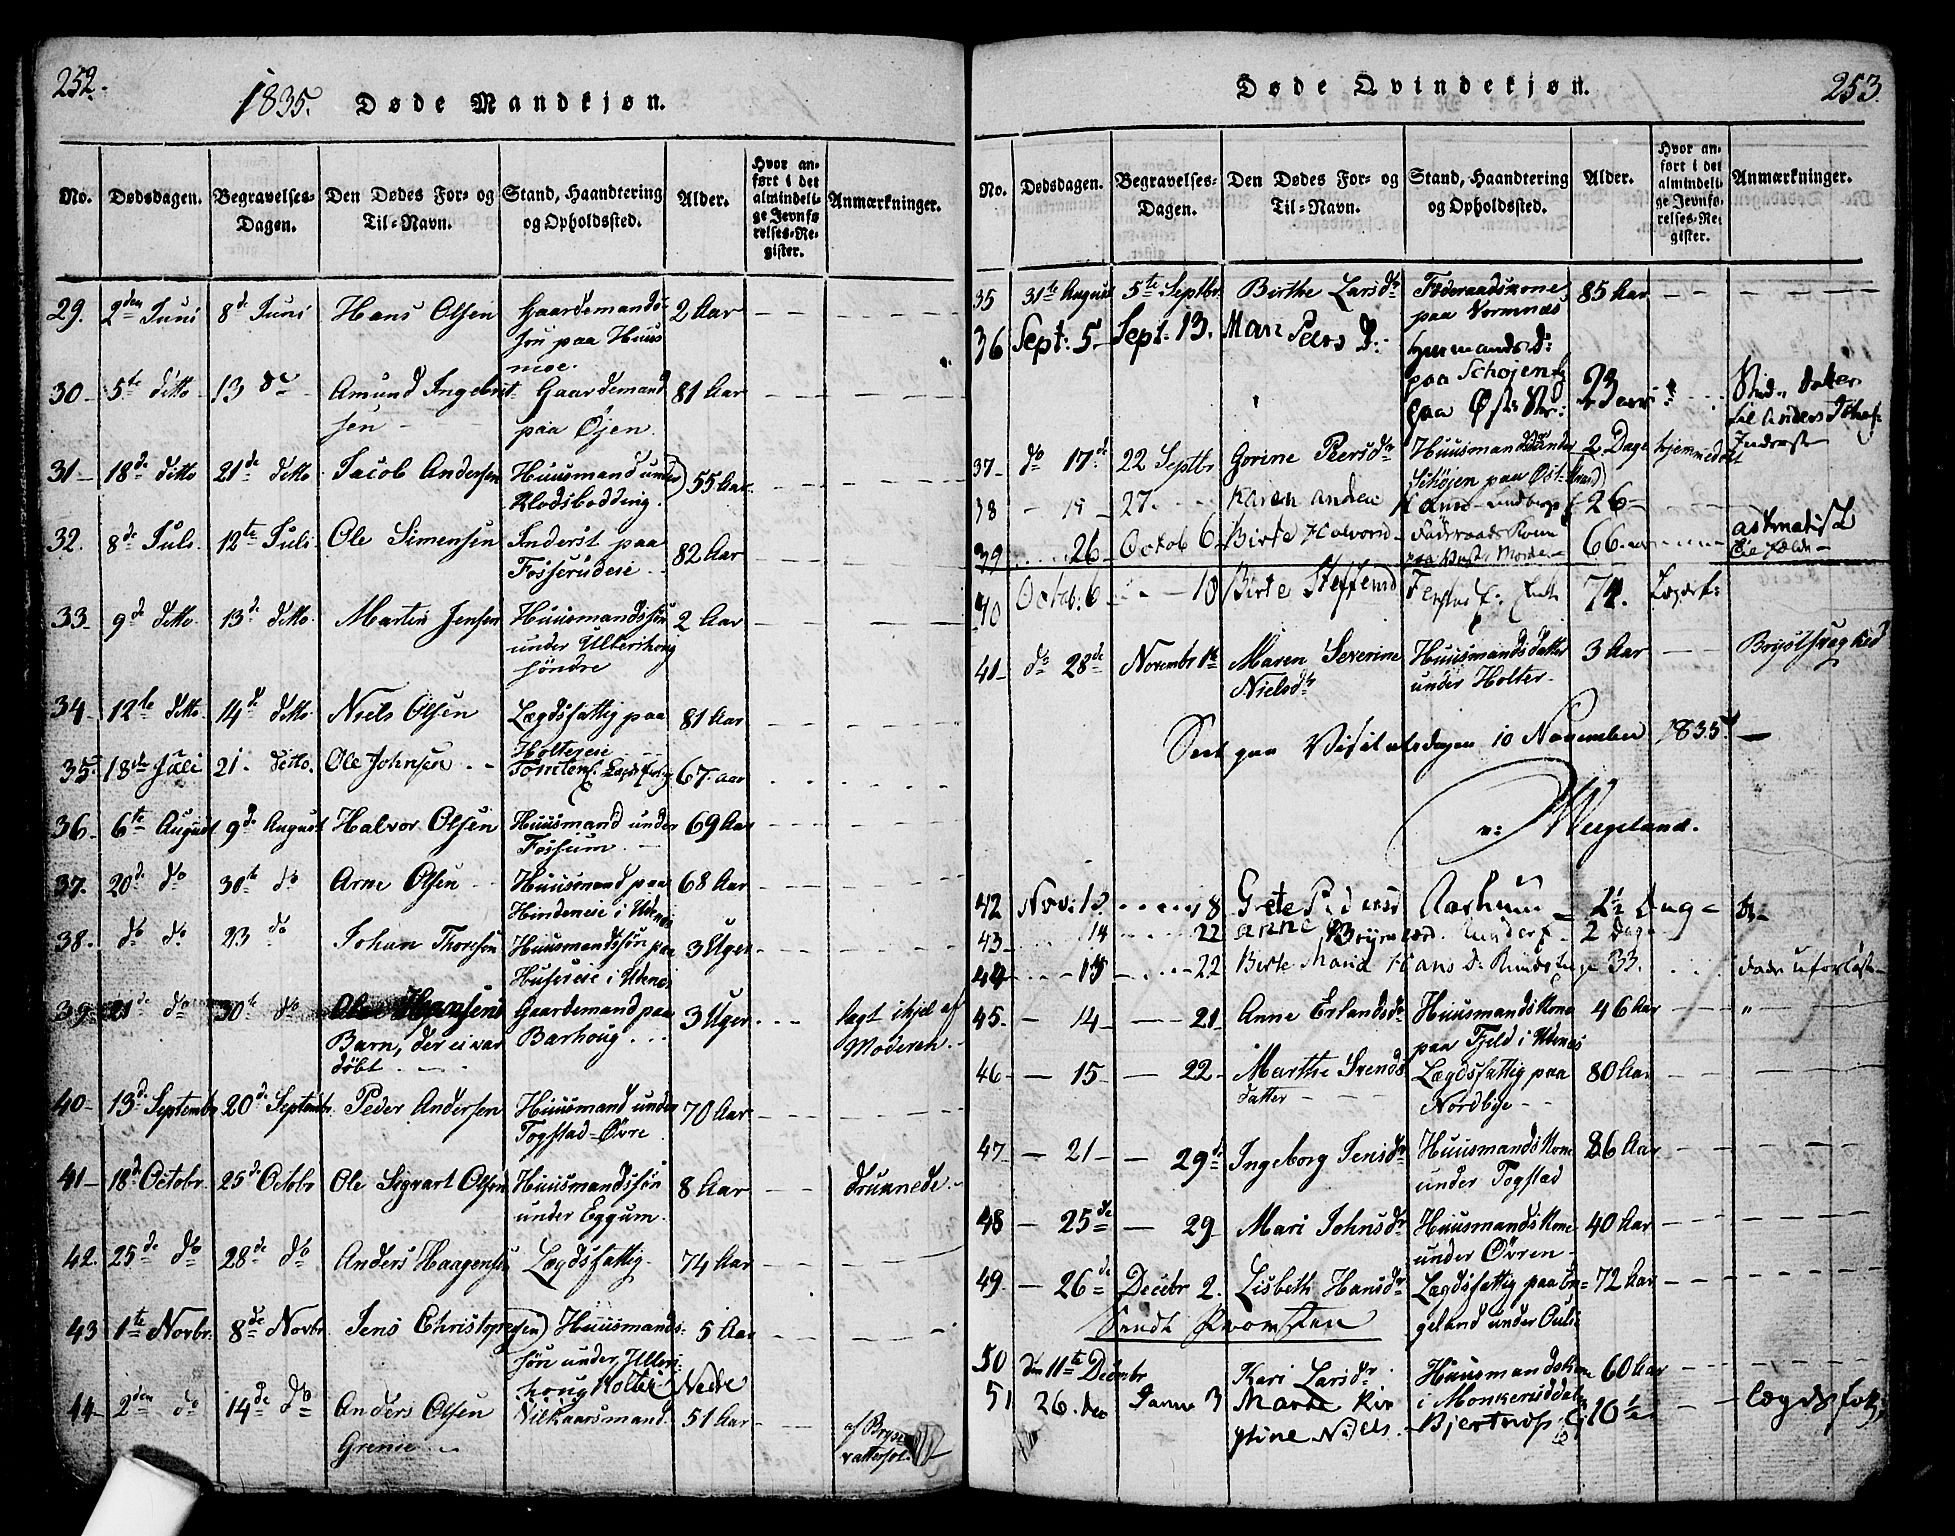 252.
1835. Døde Mandkjøn.
No. Dødsdagen. Begravelses-Dagen. Den Dødes For- og Til-Navn. Stand, Haandtering og Opholdssted. Alder. Hvor anført i det almindelige Jevnførelses-Register. Anmærkninger.
29. 2den Juni 8de Juni Hans Olsen Gaardemands-
søn paa Huus
moe. 2 Aar
30. 5te ditto 13 de Amund Ingebrit-
sen Gaardemand
paa Øjen. 81 Aar
31 18de ditto 21de ditto Jacob Andersen Huusmand under
Klodsbodding. 55 Aar
32. 8de Juli 12te Juli Ole Simensen Inderst paa
Fosserudeie 82 Aar
33 9de ditto. 13de ditto. Martin Jensen Huusmandssøn
under Ullerihoug
søndre 2 Aar
34 12te ditto 14de ditto. Niels Olsen Lægdsfattig paa
Holtereie 81 Aar
35. 18de Juli 21. ditto. Ole Johnsen 67. aar
36 6te August 9de August Halvor Olsen Huusmand under
Fossum. 69 Aar
37. 20de do 30te do Arne Olsen Huusmand paa
Hindeneie i Udenes 68 Aar
38. do do 23 do Johan Thoresøn Huusmandssøn paa
Husereie i Udenes 3 Uger
39 21de do 30te do Ole Hansens
Barn, der ei var
døbt Gaardemand paa
Barhoug 3 Uger lagt ihjel af
Moderen
40 13de Septembr 20de Septembr. Peder Andersen Huusmand under
Togstad-Øvre 70 Aar
41 18de Octobr. 25de Octobr Ole Sigvart Olsen Huusmandssøn
under Eggum. 8 Aar druknede
42. 25de do 28de do Anders Haagensen Lægdsfattig. 74 Aar
43 1te Novbr. 8de Novbr Jens Christophersen Huusmands-
søn under Ulleri-
houg Holter Nedre 5 Aar
44 2den do 14de do Anders Olsen
Grenie Vilkaarsmand 51 Aar af Bryst
vattersot.
Døde Qvindekjøn. 253.
No. Dødsdagen. Begravelses-Dagen. Den Dødes For- og Til-Navn. Stand, Haandtering og Opholdssted. Alder. Hvor anført i det almindelige Jevnførelses-Register. Anmærkninger.
35 31te August 5te Septbr Birthe Larsdr Føderaadskone
paa Vormnæs 85 Aar
36 Sept. 5 Sept. 13. Mari Peers D:
paa Schøjen
paa 23 aar
til Anders
Inderst
37 do 17de 22 Septbr Gorine Peersdr Huusmand under
Schøjen paa 2 Dage hjemmedøbt
38 27. Karen Andrea 26
39 26 Octob 6 Birte Halvord Føderaads Kone 66 aar astmatisk
40 Octob. 6 10 Birte Steffensd 74. Lægdsf:
41 do 28de Novembr 1te Maren Severine
Nielsdr Huusmandsdatter
under Holter 3 Aar Brystsvaghed
Seet paa Visitatsdagen 10 November 1835.
N: Wergeland.
42 Nov: 13. 18 Grete Pedersd Aarhuun 2½ Dag
43 14 22 Anne 2 Dage
44 15 22 Birte Maria Hans D. 33. døde uforløst
45. 14 21 Anne Erlandsdr Huusmandskone
paa Fjeld i Udenæs 46 Aar "
46 15 22 Marthe Svends
datter Lægdsfattig paa
Nordbye 80 Aar
47 21 29de Ingeborg Jensdr Huusmandskone
under Togstad 86 Aar
48 25de 29 Mari Johnsdr Huusmandskone
under Øvren 40 Aar
49. 26de Decebr 2. Lisbeth Hansdr Lægdsfattig paa En-
geland under Ouli 72 Aar
Sendt Provsten
50 den 11te Decbr Kari Larsdr Huusmandskone
i Monkeruddalen 60 Aar
51 26. Janu 3 Marte Kir
stine Niels Bjertnæs 10½ lægdsfat: